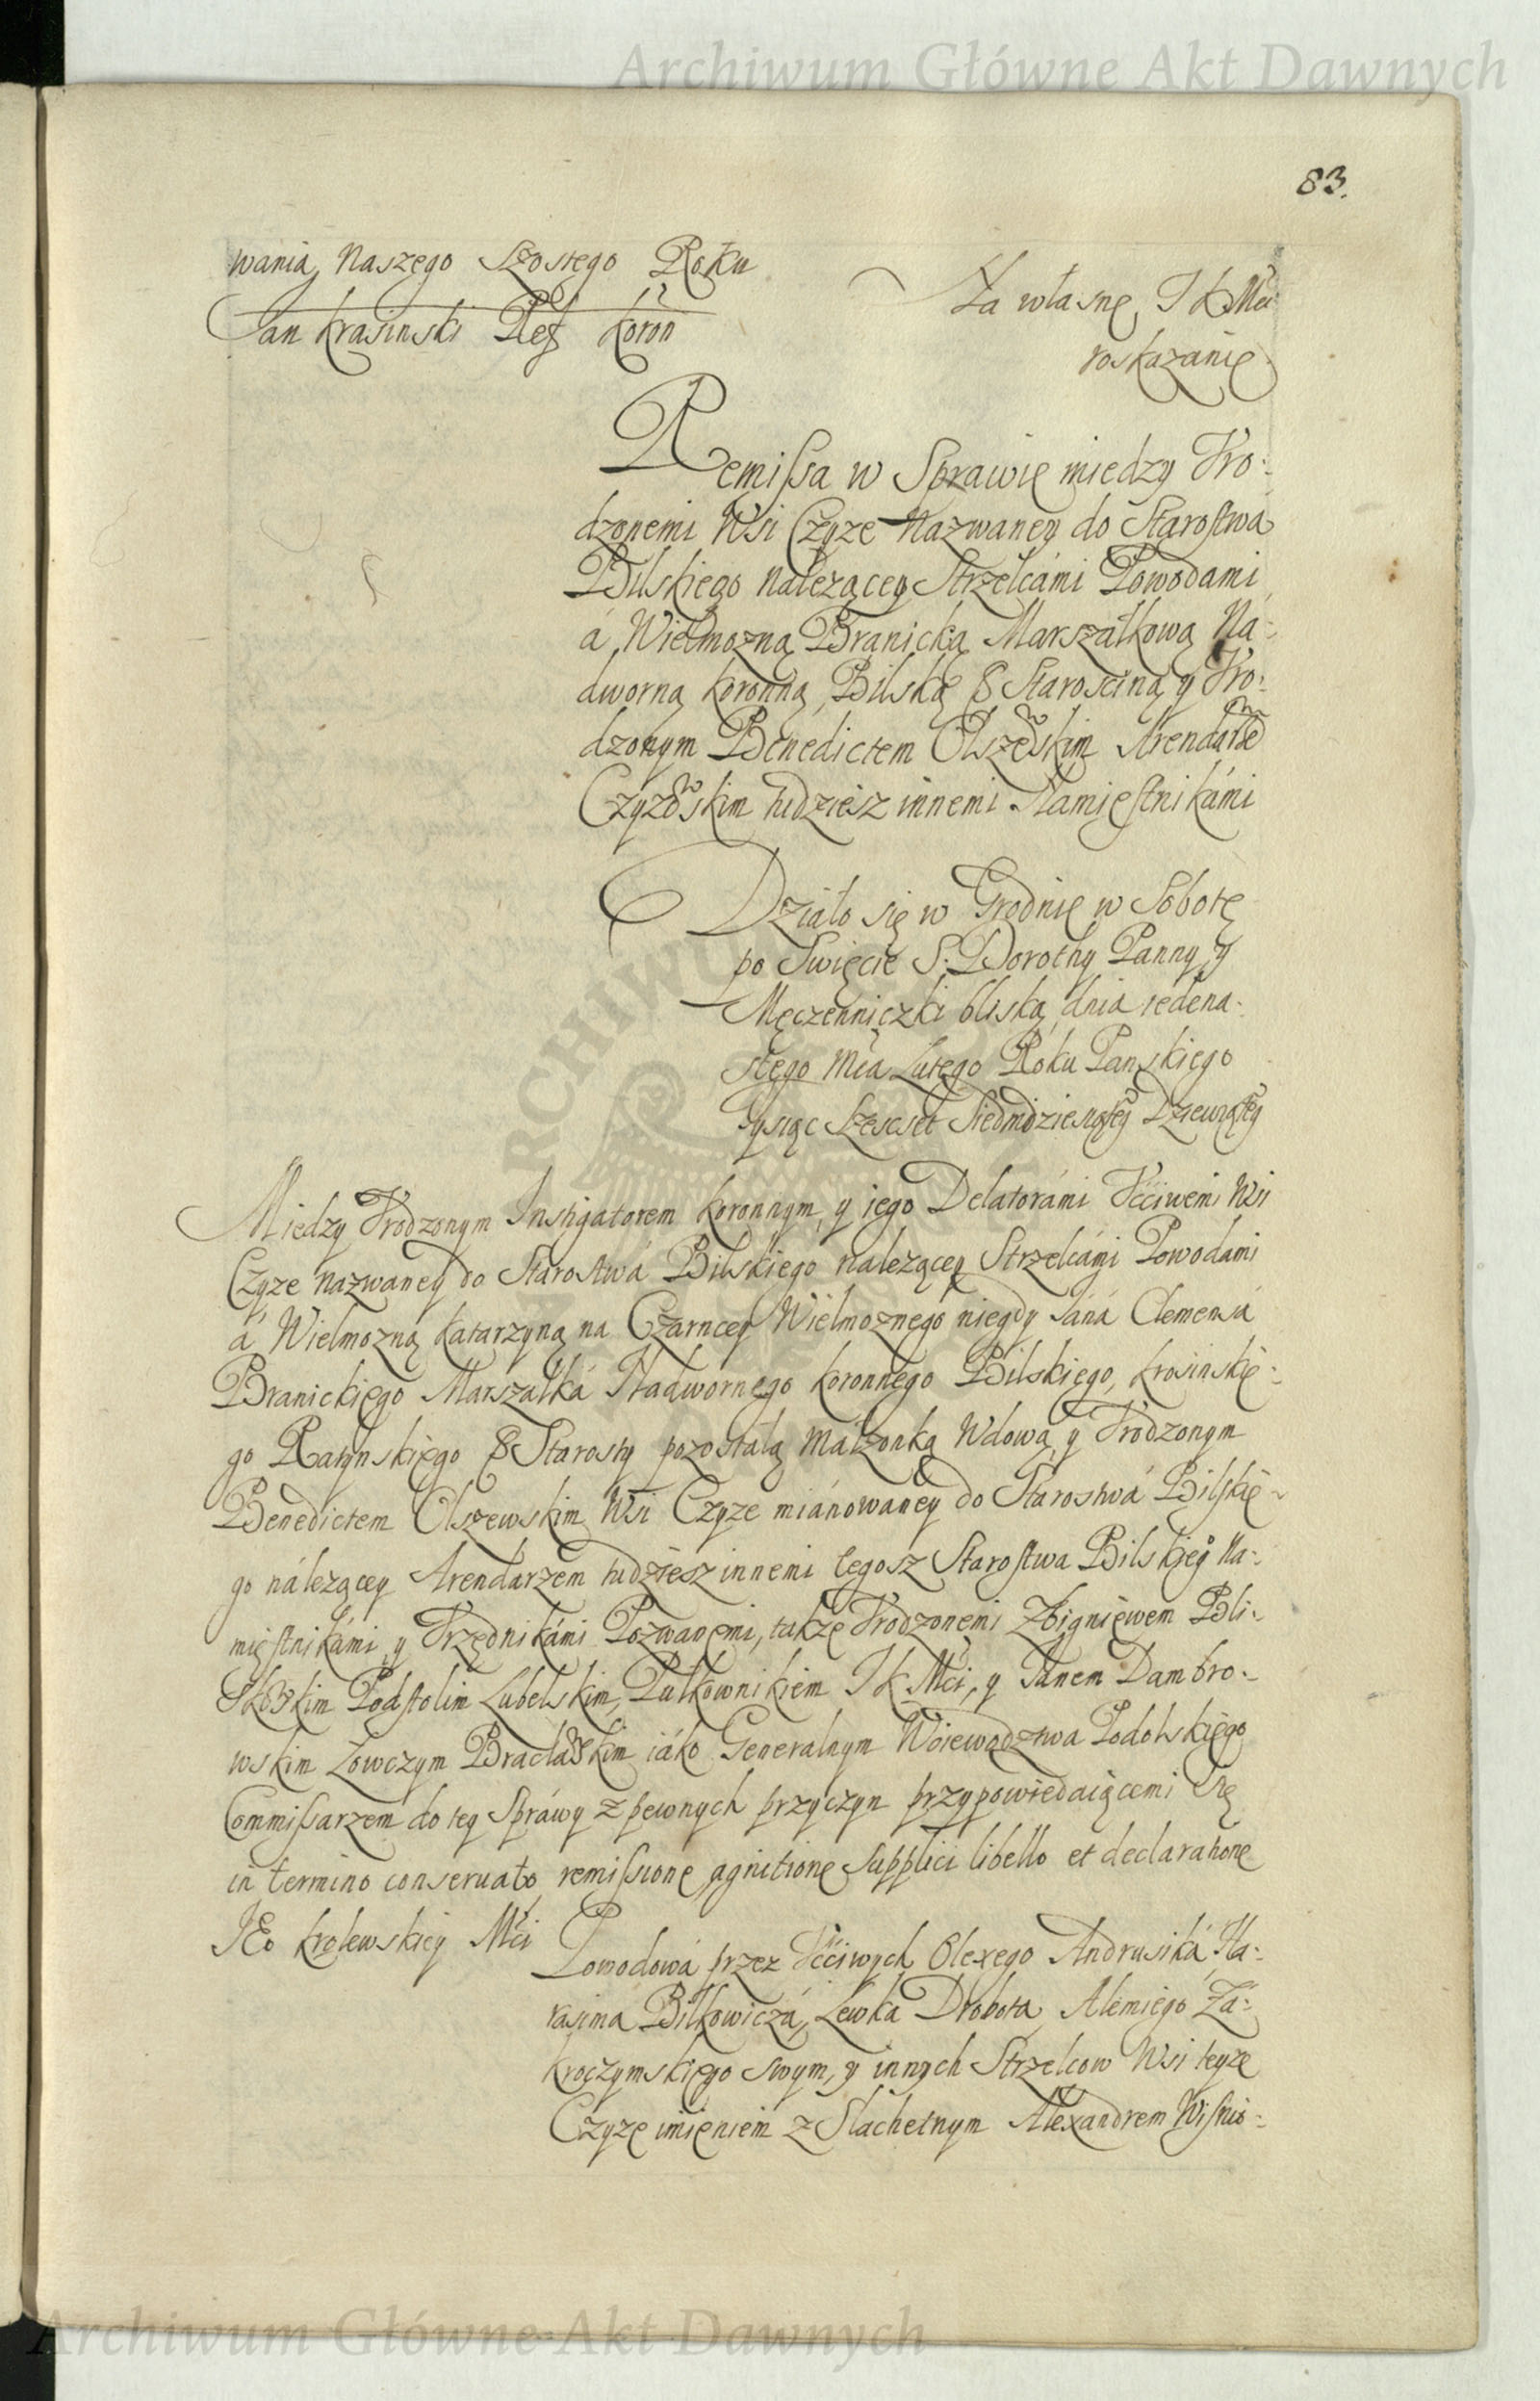 Archiwum Główne Akt Dawnych
83.
wania Naszego Szostego Roku
Jan Krasinski Ref Koron
Za własnę J K Mci
roskazanię
Remissa w Sprawię miedzy Vro-
dzonemi Wsi Czyze Nazwaney do Starostwá
Bilskiego należącey Strzelcámi Powodami
á Wielmozną Branicką Marszałkową Na-
dworną Koronną, Bilską & Starosciną y Vro-
dzonym Benedictem Olszewskim Arendarzem
Czyzowskim tudziesz innemi Namięstnikámi
Działo się w Grodnię w Sobotę
po Swięcie S. Dorothy Panny y
Męczenniczki bliską dnia iedena-
stego Mca Lutego Roku Panskiego
Tysiąc Szescset Siedmdziesiąteg Dziewiąteg
Miedzy Vrodzonym Instigatorem Koronnym, y iego Delatorámi Vcciwemi Wsi
Czyze nazwaney do Starostwá Bilskiego nalezącey Strzelcámi Powodami
á Wielmozną Katarzyną na Czarncey Wielmoznego niegdy Jáná Clemensá
Branickiego Marszałká Nadwornego Koronnego Bilskiego, Krosinskie-
go Ratynskiego & Starosty pozostałą Małzonką Wdową y Vrodzonym
Benedictem Olszewskim Wsi Czyze miánowaney do Stárostwá Bilskie-
go nálezącey Arendarzem tudziesz innemi tegosz Starostwa Bilskieg Na-
mięstnikámi y Vrzędnikámi Pozwanemi, takze Vrodzonemi Zbigniewem Bli-
skowskim Podstolim Lubelskim, Pułkownikiem J K Mci, y Janem Dambro-
wskim Łowczym Bracławskim iáko Generalnym Woiewodztwa Podolskiego
Commissarzem do tey Spráwy z pewnych przyczyn przypowiedaiącemi się
in termino conseruato remissione agnitione supplici libello et declaratione
JEo Krolewskiey Mci
Powodowá przez Vcciwych Olexego Andrusiká Ha-
rasima Bilkowiczá, Lewka Drobota Alemiego Zá-
kroczymskiego swym, y innych Strzelcow Wsi teyze
Czyze imieniem z Slachetnym Alexandrem Wisnio-
Archiwum Główne Akt Dawnych